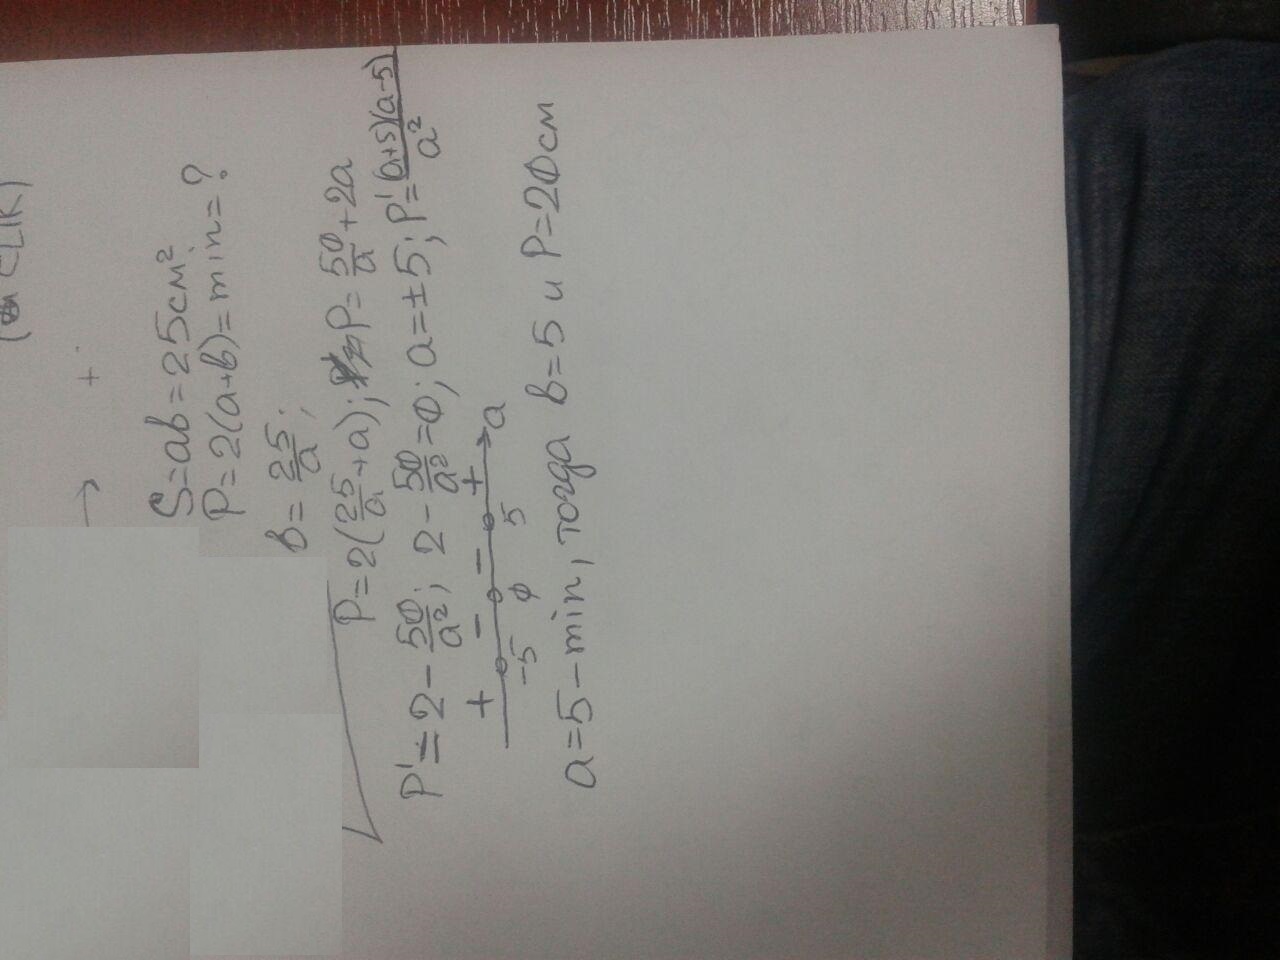 S=ab=25см²
P=2(a+b)=min=?
b=25/a;
P=2(25/a+a); P=50/a+2a
P'=2-50/a²; 2-50/a²=0; a=±5; P'=(a+5)(a-5)/a²
+ - - + a
-5 0 5
a=5-min, тогда b=5 и P=20см